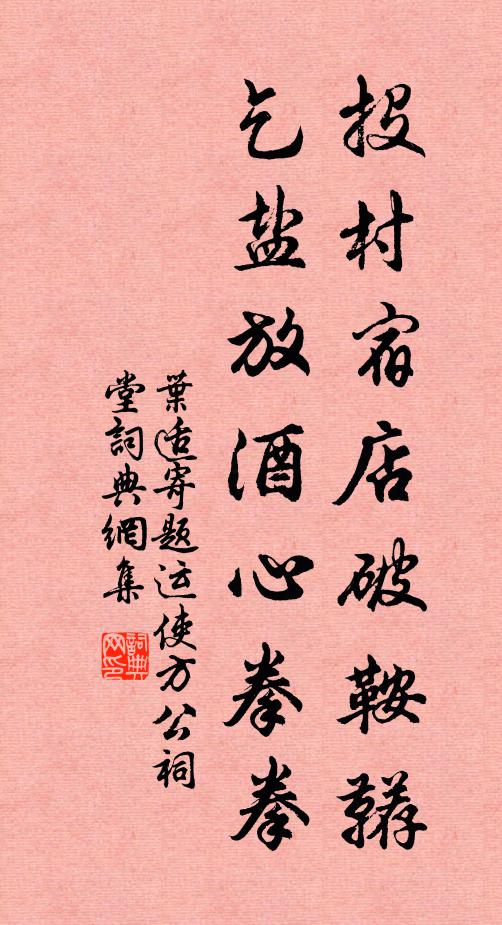 投村宿店破鞍韉
乞盐放酒心拳拳
葉适寄題运使方公祠
堂詞典網集
詞典網印